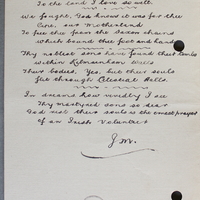 To the land I love so well.
We fought, God knows it was for thee
Eire, our Motherland
To free thee from the Saxon chains
which bound thee foot and hand
Thy noblest sons have found their tombs
within Kilmainham Walls
Their bodies, Yes, but their souls
flit through Celestial Halls
In dreams how vividly I see
Thy martyred sons so dear
God rest their souls is the prayer
of an Irish Volunteer
J.M.